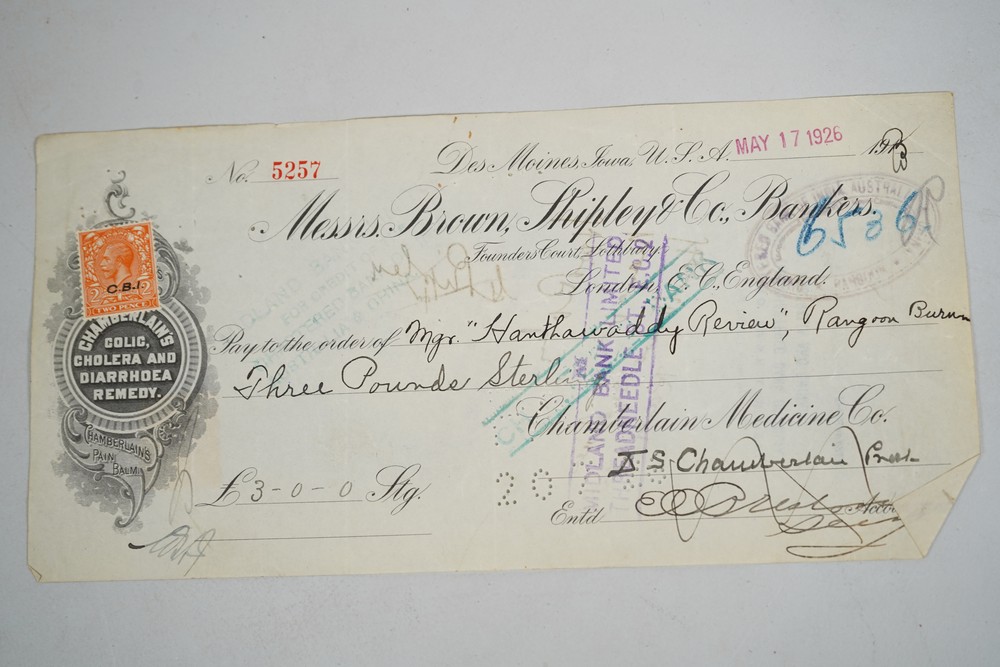 No. 5257
Des Moines, Iowa, U.S.A. MAY 17 1926
Messrs. Brown, Shipley & Co., Bankers.
6586
Founders Court, Lothbury
London, E.C., England.
Pay to the order of Mgr. "Hanthawaddy Review", Rangoon Burma
Three Pounds Sterling
Chamberlain Medicine Co.
L.S. Chamberlain Prest.
£3-0-0 Stg.
Ent'd
C.B.I
TWO PENCE
CHAMBERLAIN'S
COLIC,
CHOLERA AND
DIARRHOEA
REMEDY.
CHAMBERLAIN'S
PAIN
BALM
MIDLAND BANK LIMITED
THREADNEEDLE ST
INDIA AUSTRALIA